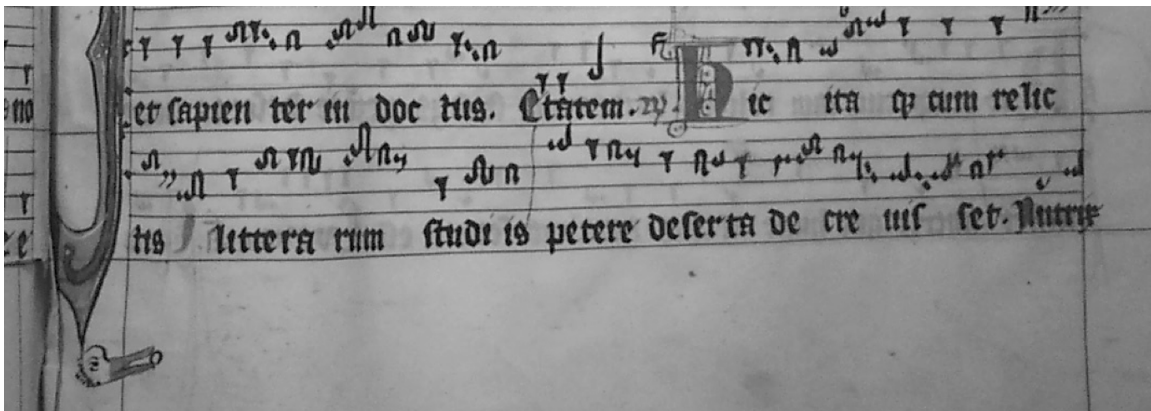 et sapien ter in doc tus. Etatem. Hic ita cum relic
tis littera rum studi is petere deserta de cre uis set. Nutrix